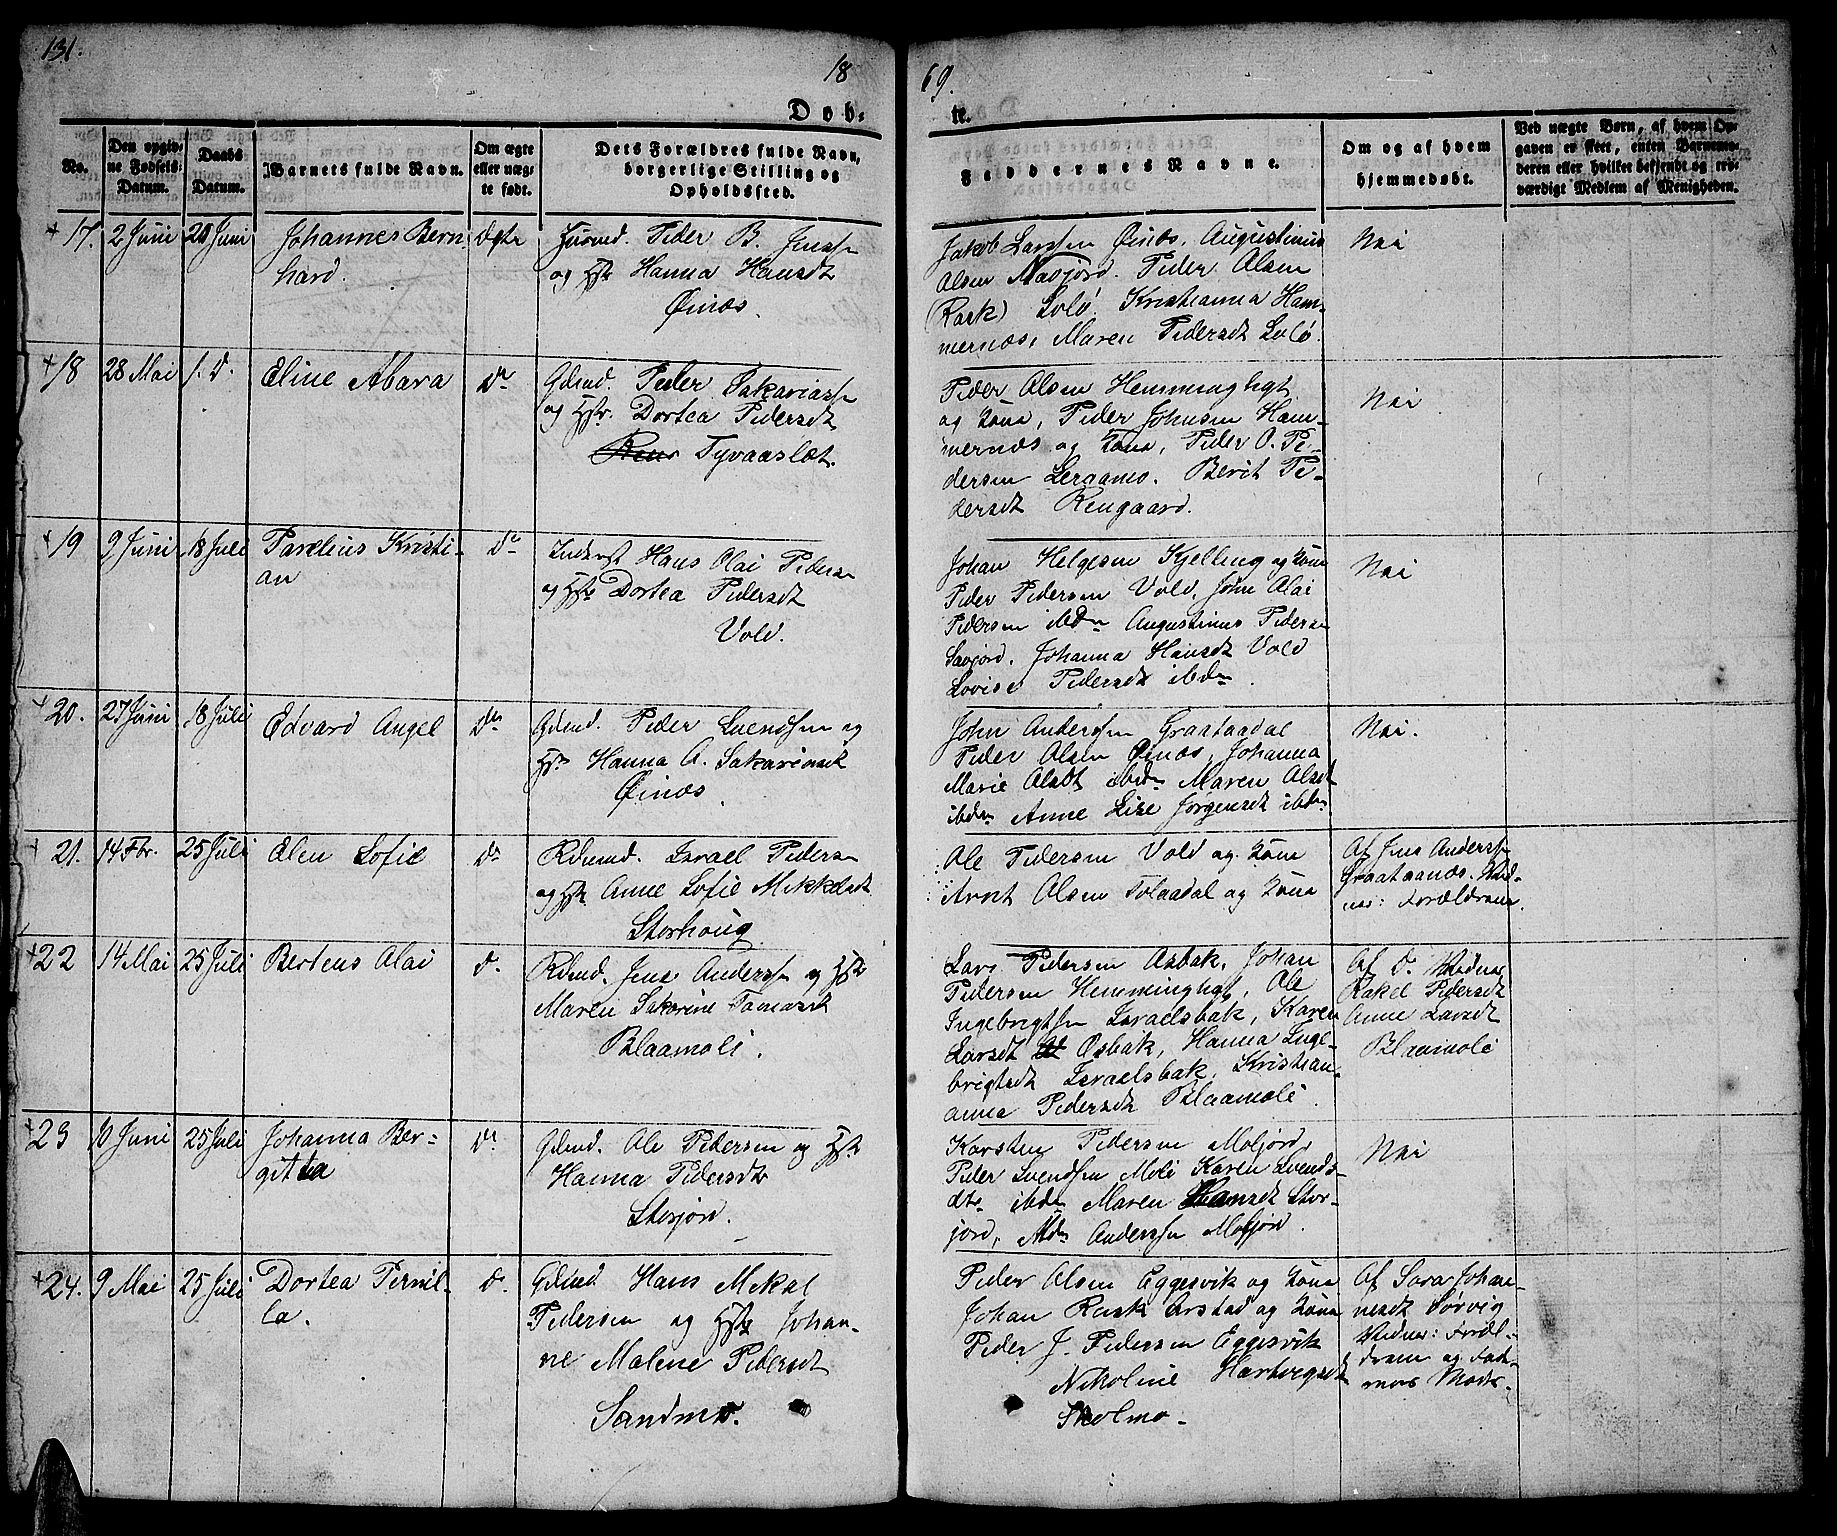 131.
18
69.
Døb-
te.
No.
Den opgiv-
ne Fødsels-
Datum.
Daabs
Datum.
Barnets fulde Navn.
Om ægte
eller uæg-
te født.
Dets Forældres fulde Navn,
borgerlige Stilling og
Opholdssted.
Faddernes Navne.
Om og af hvem
hjemmedøbt.
Ved uægte Børn, af hvem Op-
gaven er skeet, enten Barnemo-
deren eller hvilket bekjendt og tro-
værdigt Medlem af Menigheden.
17. 2 Juni 20 Juni Johannes Bern
hard.
Ægte
Husmd. Peder B. Jenss.
og Hst. Hanna Hansdt
Øinæs.
Jakob Larssen Øinæs, Augustinus
Olsen Navjord. Peder Olsen
(Rask) Solø. Kristianna Ham-
mernæs, Maren Pedersdt Solø.
Nei
18 28 Mai 1. D. Eline Abara
Do
Gdmd. Peder Sakariass.
og Hstr. Dortea Pedersdt
Tyvaaslæt.
Peder Olsen Hemminghgt
og Kone, Peder Johnsen Ham-
mernæs og Kone, Peder O. Pe-
dersen Leraamo. Berit Pe-
dersdt Rengaard.
Nei
19 9 Juni 18 Juli Parelius Kristi-
an
Do
Inderst Hans Olai Peders.
og Hst Dortea Pedersdt
Vold.
Johan Helgesen Kjelling og Kone
Peder Pedersen Vold, John Olai
Pedersen ibdn Augustinus Peders.
Savjord. Johanna Hansdt Vold
Lovise Pedersdt ibdn.
Nei
20. 27 Juni 18 Juli Edvard Angel
Do
Gdmd. Peder Svendsen og
Hst Hanna A. Sakariasdt
Øinæs.
John Anderssen Graataadal
Peder Olsen Øinæs, Johanna
Marie Olsdt ibdn Maren Olsdt
ibdn Anne Lise Jørgensdt ibdn
Nei.
21. 14 Fbr. 25 Juli Elen Sofie
Do
Rdmd. Israel Peders.
og Hst Anne Sofie Mikkelsdt
Storhoug
Ole Pedersen Vold og Kone
Arnt Olsen Tolaadal og Kone
Af Jens Anderss.
Graataanæs. Vid-
ner: Forældrene.
22 14 Mai 25 Juli Berteus Olai
D.
Rdmd. Jens Anderssn og Hst
Maren Sakarine Tomasdt
Blaamoli.
Lars Pedersen Osbak, Johan
Pedersen Hemminghgt, Ole
Ingebrigtsen Israelsbak, Karen
Larsdt Osbak, Hanna Inge-
brigtsdt Israelsbak, Kristian-
anna Pedersdt Blaamoli.
Af D. Vidner
Rakel Pedersdt
Anne Larsdt
Blaamoli
23 10 Juni 25 Juli Johanna Ber-
gitta
Do
Gdmd. Ole Pedersen og Hst
Hanna Pedersdtr
Storjord.
Karsten Pedersen Moljord,
Peder Svendsen Moli Karen Svends-
dtr ibdn Maren Hansdt Stor-
jord, Anderssen Moljord.
Nei
24. 9 Mai 25 Juli Dortea Pernil-
la.
D.
Gdmd Hans Mekal
Pedersen og Hst Johan-
ne Malene Pedersdt
Sandmo.
Peder Olsen Eggesvik og Kone
Johan Rask Arstad og Kone
Peder J. Pedersen Eggesvik
Nikoline Hartvigsdt
Skolmo.
Af Sara Johan-
nesdt Sørvig
Vidner: Foræl-
drene og Fade-
rens Moder.